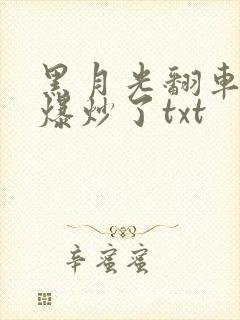 黑月光翻車
爆炒了txt
辛蜜蜜